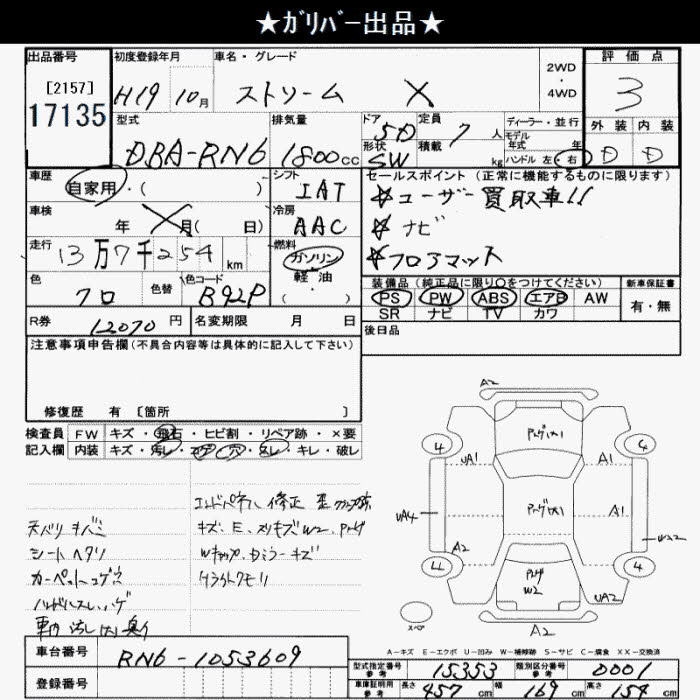 ★ｶﾞﾘﾊﾞｰ出品★
出品番号 初度登録年月 車名・グレード 2WD・4WD 評価点
[2157] H19 10月 ストリーム X 3
17135 型式 排気量 ドア 5D 定員 7人 ディーラー・並行 外装 内装
DBA-RN6 1800cc 形状 SW 積載 kg モデル年式 年 ハンドル 左・右 D D
車歴 シフト セールスポイント (正常に機能するものに限ります)
自家用・( ) IAT ☆ユーザー買取車!!
車検 年 月( 日) 冷房 AAC ☆ナビ
走行 13万7千254km 燃料 ガソリン・軽油・( ) ☆フロアマット
色 クロ 色替 色コード B92P
装備品(純正品に限り○をつけてください) 新車保証書
PS PW ABS エアB AW 有・無
SR ナビ TV カワ
R券 12070円 名変期限 月 日 後日品
注意事項申告欄(不具合内容等は具体的に記入して下さい)
修復歴 有 [箇所 ]
検査員 FW キズ・飛石・ヒビ割・リペア跡・×要
記入欄 内装 キズ・汚レ・コゲ・穴・スレ・キレ・破レ
エンドパネル 修正
天バリ キバミ キズ、E、スリキズ W2
シート ヘタリ Wキャップ、Dミラーキズ
カーペットコゲ穴 ハライトクモリ
ハンドルスレ、ハゲ
A2
4 UA1 A1
UA4 A1
A2 4
W2 UA2
スペア A2
A-キズ E-エクボ U-凹み W-補修跡 S-サビ C-腐食 XX-交換済
車台番号 RN6-1053609
型式指定番号 参考 15353 類別区分番号 参考 0001
登録番号 車庫証明用 参考 長さ 457cm 幅 169cm 高さ 154cm